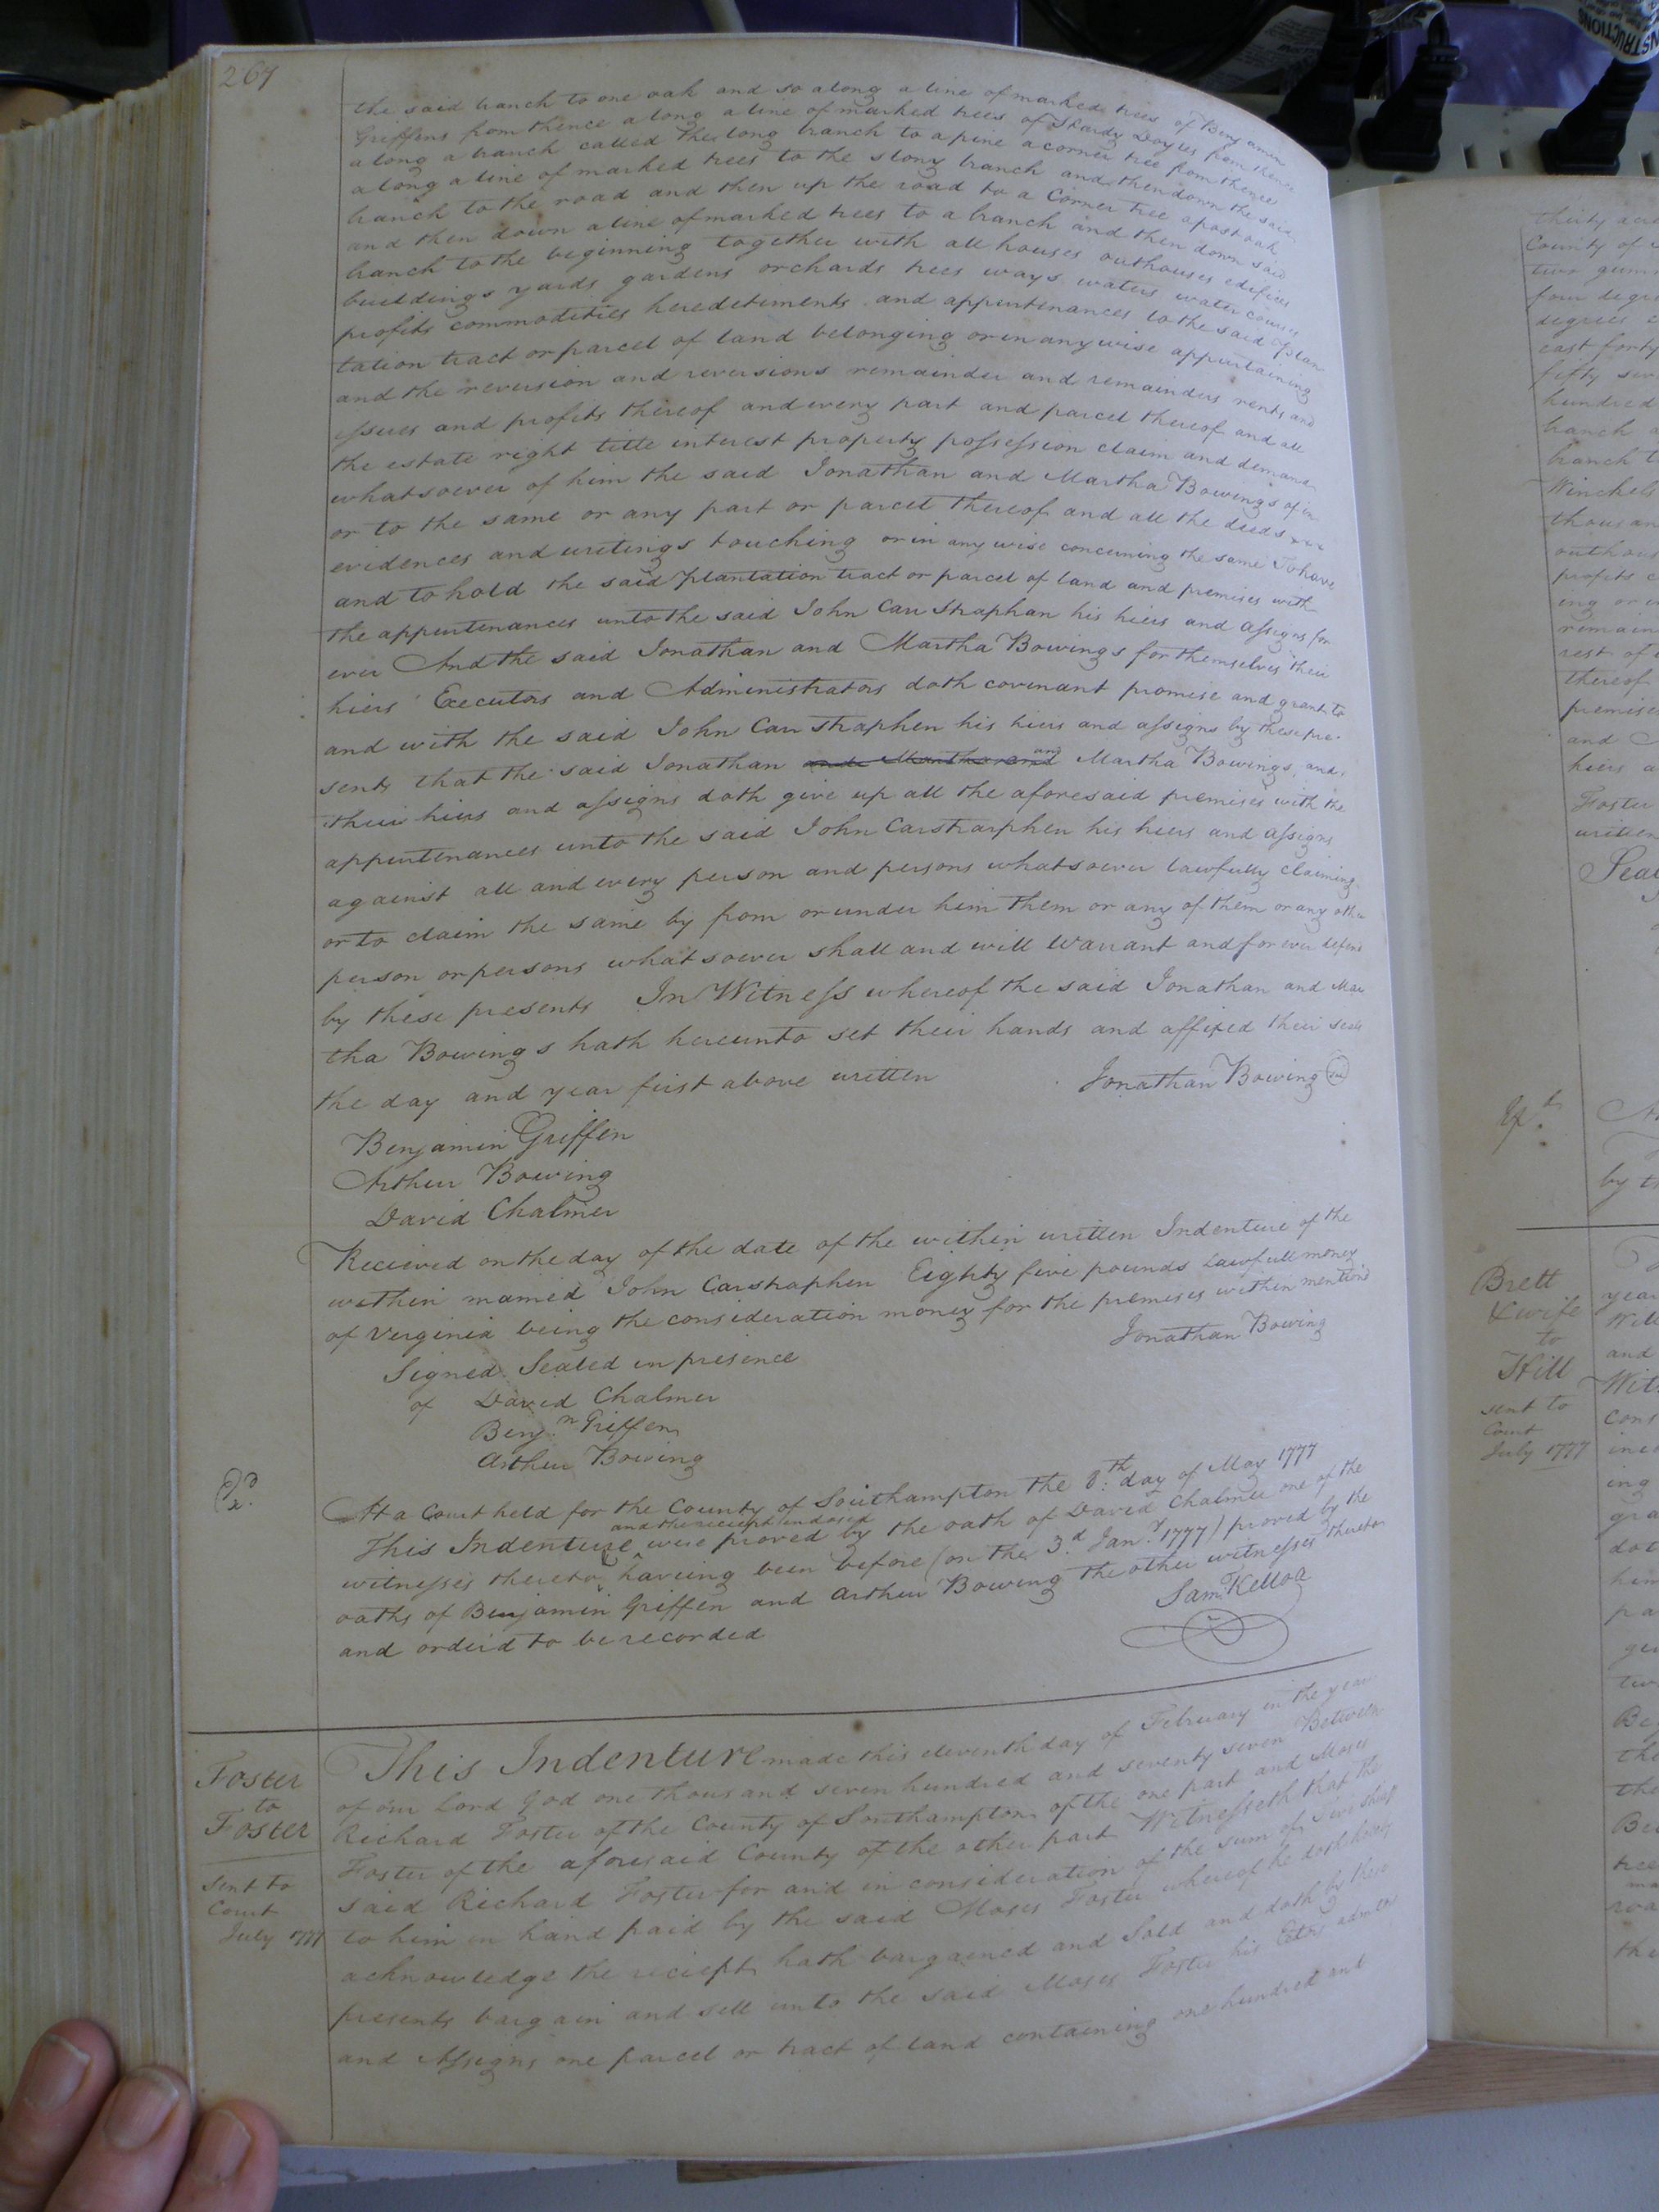 267
the said branch to one oak and so along a line of marked trees of Benjamin
Griffens from thence along a line of marked trees of Hardy Doyles from thence
along a branch called the long branch to a pine a corner tree from thence
along a line of marked trees to the stony branch and then down the said
branch to the road and then up the road to a Corner tree a post oak
and then down a line of marked trees to a branch and then down said
branch to the beginning together with all houses outhouses edifices
buildings yards gardens orchards trees ways waters water courses
profits commodities heredetiments and appurtinances to the said Plan
tation tract or parcel of land belonging or in anywise appurtaining
and the reversion and reversions remainder and remainders rents and
issues and profits thereof and every part and parcel thereof and all
the estate right title interest property possession claim and demand
whatsoever of him the said Jonathan and Martha Bowings of in
or to the same or any part or parcel thereof and all the deeds
evidences and writings touching or in any wise concerning the same To have
and to hold the said Plantation tract or parcel of land and premises with
the appurtenances unto the said John Carr Straphan his hiers and assigns for
ever And the said Jonathan and Martha Bowings for themselves their
hiers Executors and Administrators doth covenant promise and grant to
and with the said John Carr Straphen his hiers and assigns by these pre-
sents that the said Jonathan and Martha Bowings, and
their hiers and assigns doth give up all the aforesaid premises with the
appurtenances unto the said John Carstrarphen his hiers and assigns
against all and every person and persons whatsoever lawfully claiming
or to claim the same by from or under him them or any of them or any other
person or persons whatsoever shall and will warrant and for ever defend
by these presents In Witness whereof the said Jonathan and Mar
tha Bowings hath hereunto set their hands and affixed their seals
the day and year first above written Jonathan Bowing seal
Benjamin Griffen
Arthur Bowing
David Chalmer
Recieved on the day of the date of the within written Indenture of the
within named John Carstraphen Eighty five pounds Lawfull money
of Verginia being the consideration money for the premises within mention'd
Signed Sealed in presence Jonathan Bowing
of David Chalmer
Benj.n Griffen
Arthur Bowing
At a Court held for the County of Southampton the 8.th day of May 1777
This Indenture and the reciept indorsed were proved by the oath of David Chalmer one of the
witnesses thereto, having been before (on the 3.d Jan.y 1777) proved by the
oaths of Benjamin Griffen and Arthur Bowing the other witnesses thereto
and orderd to be recorded Sam. Kelloa
Foster
to
Foster
sent to
Court
July 1777
This Indenture made this eleventh day of February in the year
of our Lord God one thousand seven hundred and seventy seven Between
Richard Foster of the County of Southampton of the one part and Moses
Foster of the aforesaid County of the other part Witnesseth that the
said Richard Foster for and in consideration of the sum of five shill
to him in hand paid by the said Moses Foster whereof he doth hereby
acknowledge the reciept hath bargained and Sold and doth by these
presents bargain and sell unto the said Moses Foster his Exors adm.
and Assigns one parcel or tract of land containing one hundred and
thirty
County of
two gum
four
degrees
east forty
fifty
hundred
branch
branch
Winchels
profits
remain
rest of
thereof
premises
and
hiers
Foster
written
by
Brett
& wife
to
Hill
sent to
Court
July 1777
year
and